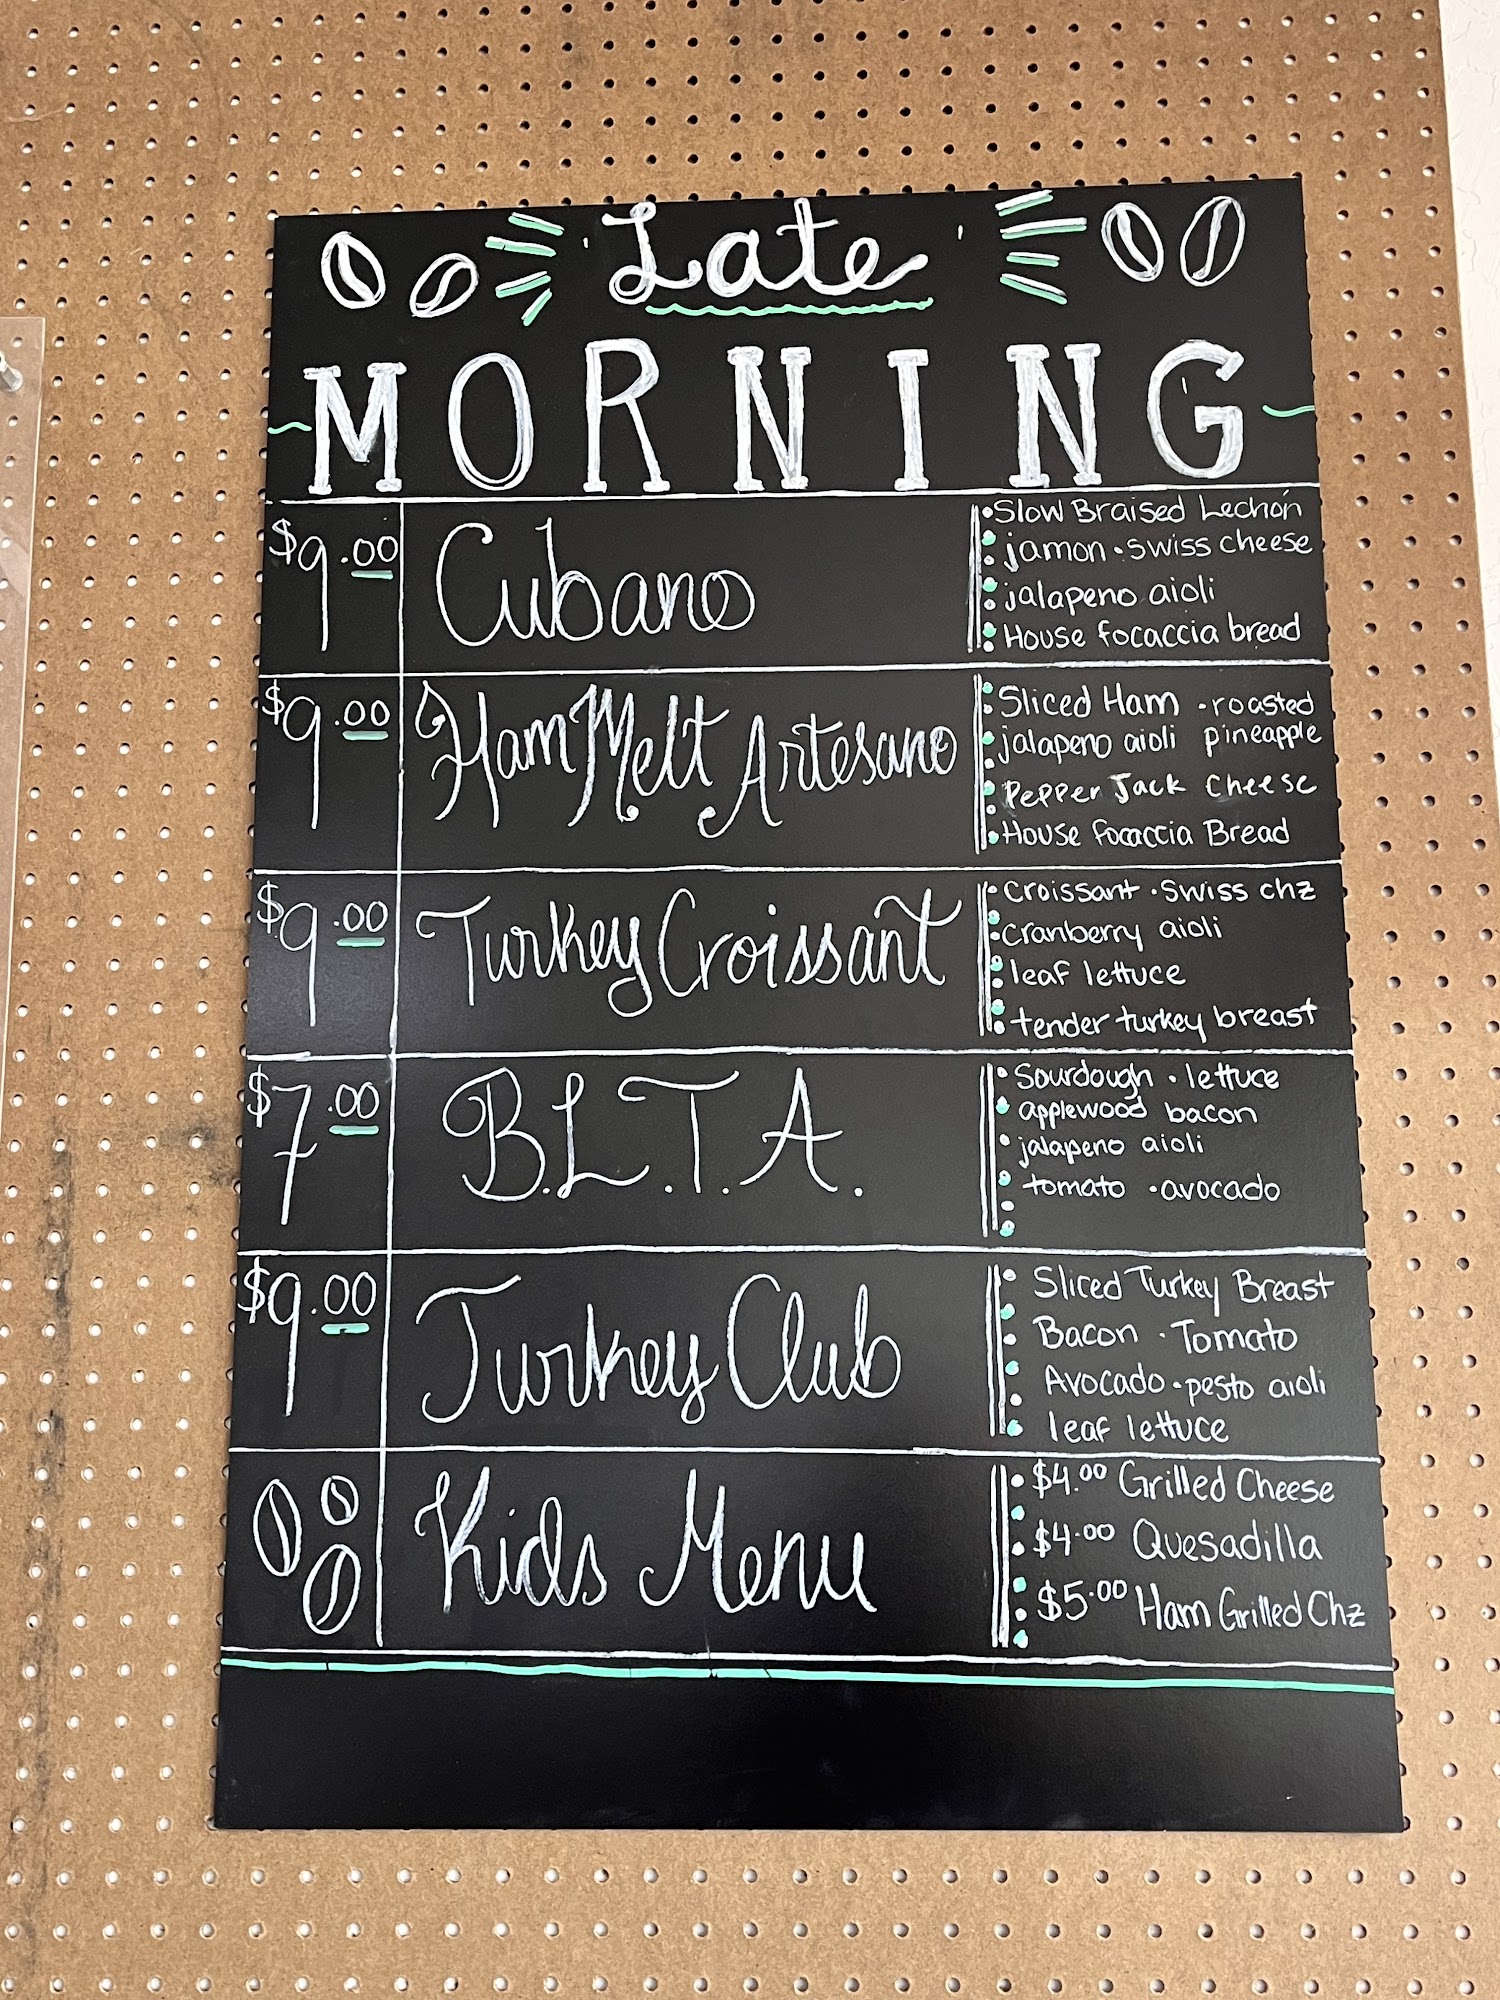 Late
MORNING
$9.00 Cubano
Slow Braised Lechón
jamon · swiss cheese
jalapeno aioli
House focaccia bread
$9.00 Ham Melt Artesano
Sliced Ham · roasted
jalapeno aioli pineapple
Pepper Jack Cheese
House focaccia Bread
$9.00 Turkey Croissant
Croissant · Swiss chz
cranberry aioli
leaf lettuce
tender turkey breast
$7.00 B.L.T.A.
Sourdough · lettuce
applewood bacon
jalapeno aioli
tomato · avocado
$9.00 Turkey Club
Sliced Turkey Breast
Bacon · Tomato
Avocado · pesto aioli
leaf lettuce
Kids Menu
$4.00 Grilled Cheese
$4.00 Quesadilla
$5.00 Ham Grilled Chz